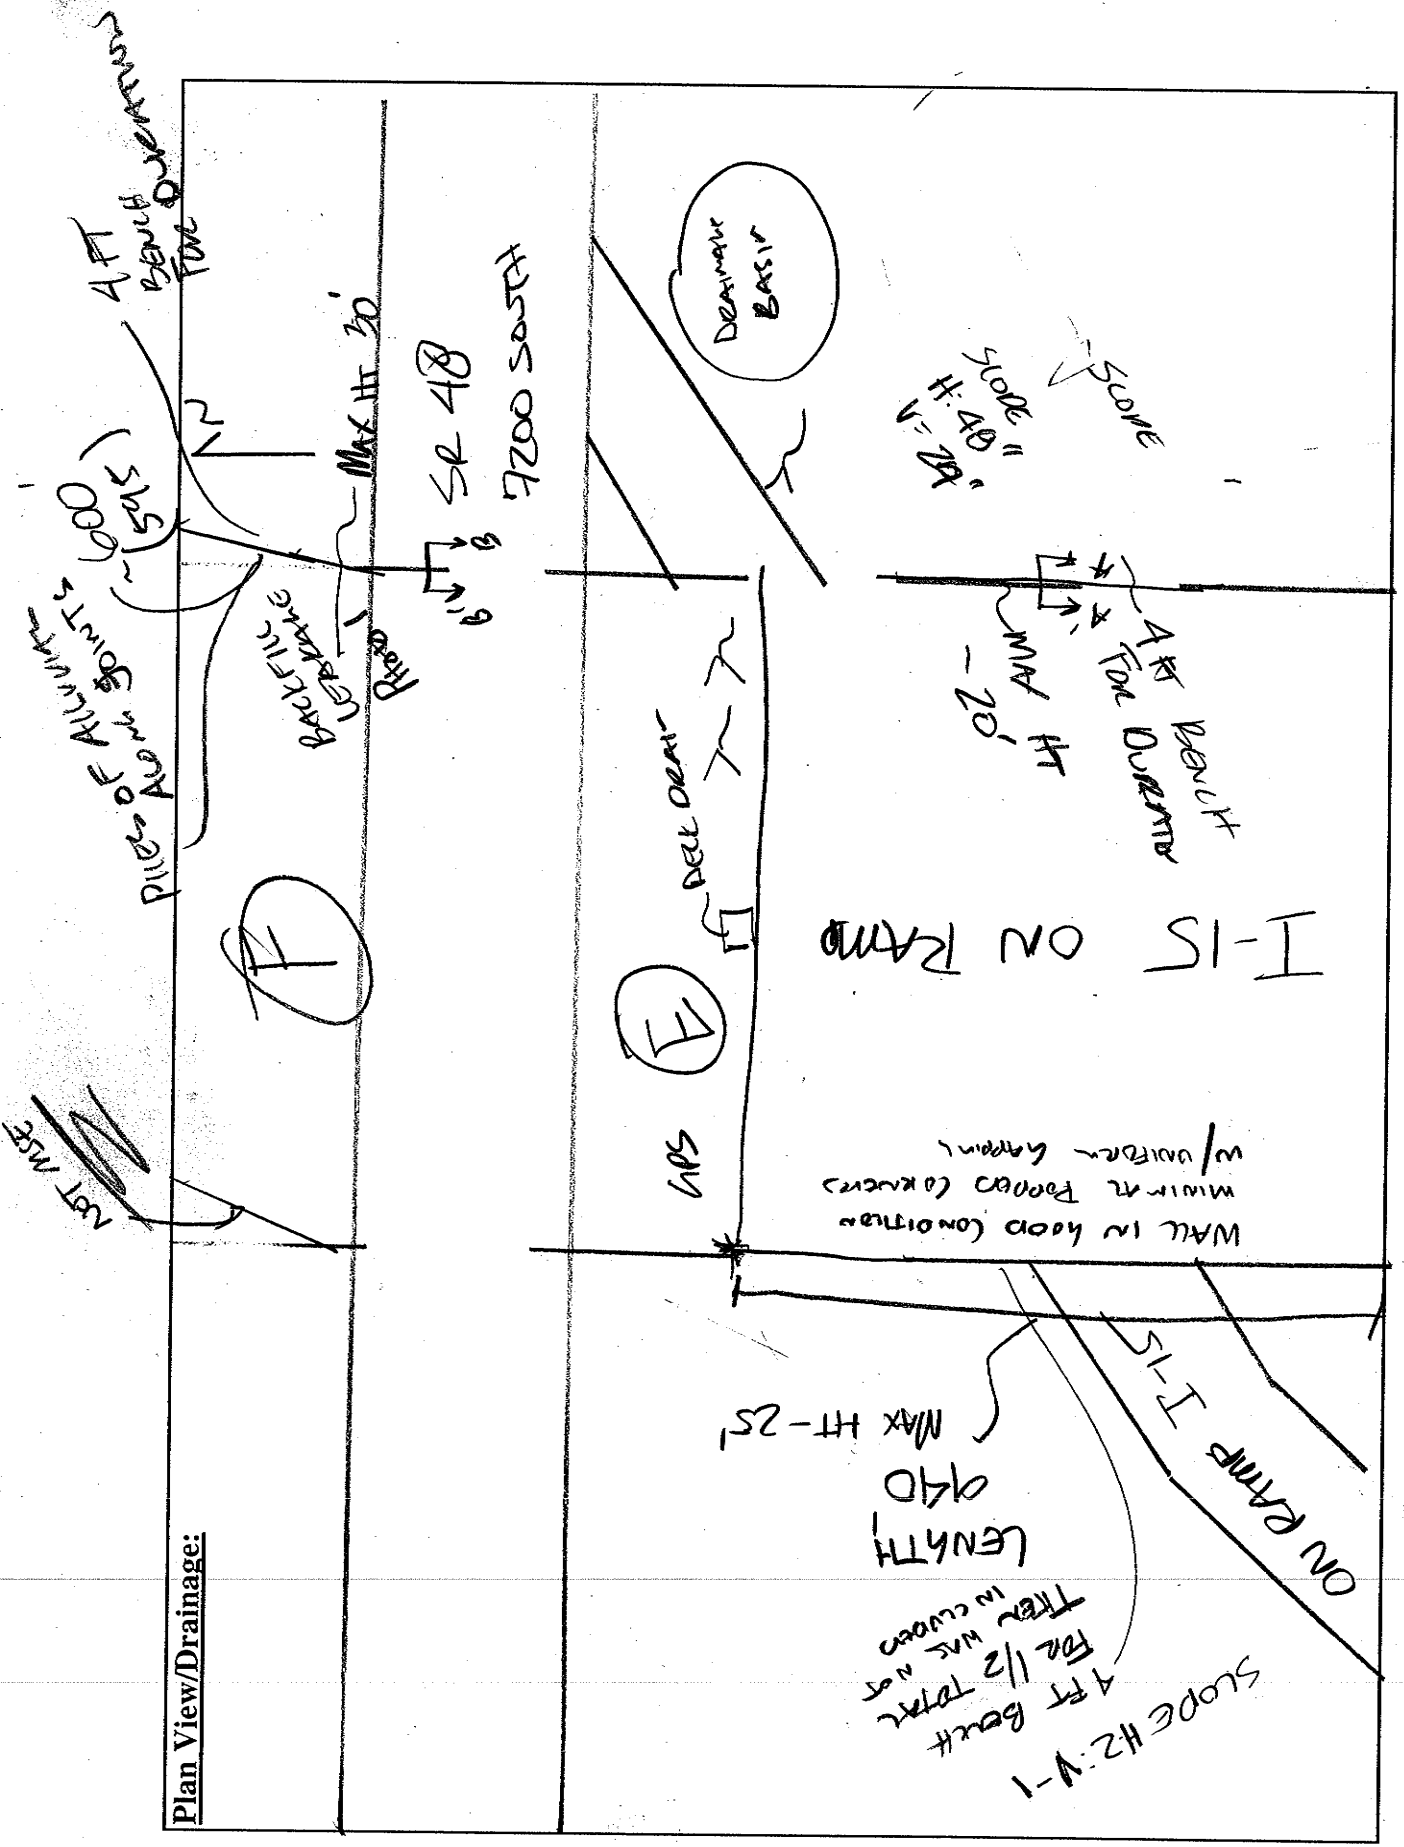 Plan View/Drainage:
NOT MSE
PILES OF ALLUVIAL
ALONG JOINTS
~600
(595)
4 FT
BENCH
FOR DURATION
N
MAX HT 30'
BACKFILL
LEAKAGE
PHOTO
SR 48
7200 SOUTH
B' B
F
E
GPS
DECK DRAIN
DRAINAGE
BASIN
SLOPE
H: 48"
V= 24"
SLOPE
A A'
MAX HT
- 20'
4 FT BENCH
FOR DURATION
I-15 ON RAMP
WALL IN GOOD CONDITION
MINIMAL POPPED CORNERS
W/ UNIFORM GAPPING
MAX HT - 25'
LENGTH
940'
4 FT BENCH
FOR 1/2 TOTAL
THEN WAS NOT
INCLUDED
SLOPE H2:V-1
ON RAMP I-15